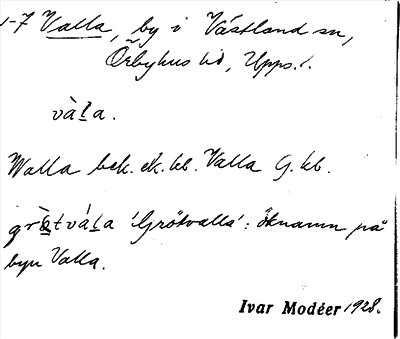 1-7 Valla, by i Västland sn,
Örbyhus hd, Upps. l.
và̀ḷa.
Walla bek. ek. kb. Valla G. kb.
grö̀tváḷa 'Grötvalla': öknamn på
byn Valla.
Ivar Modéer 1928.